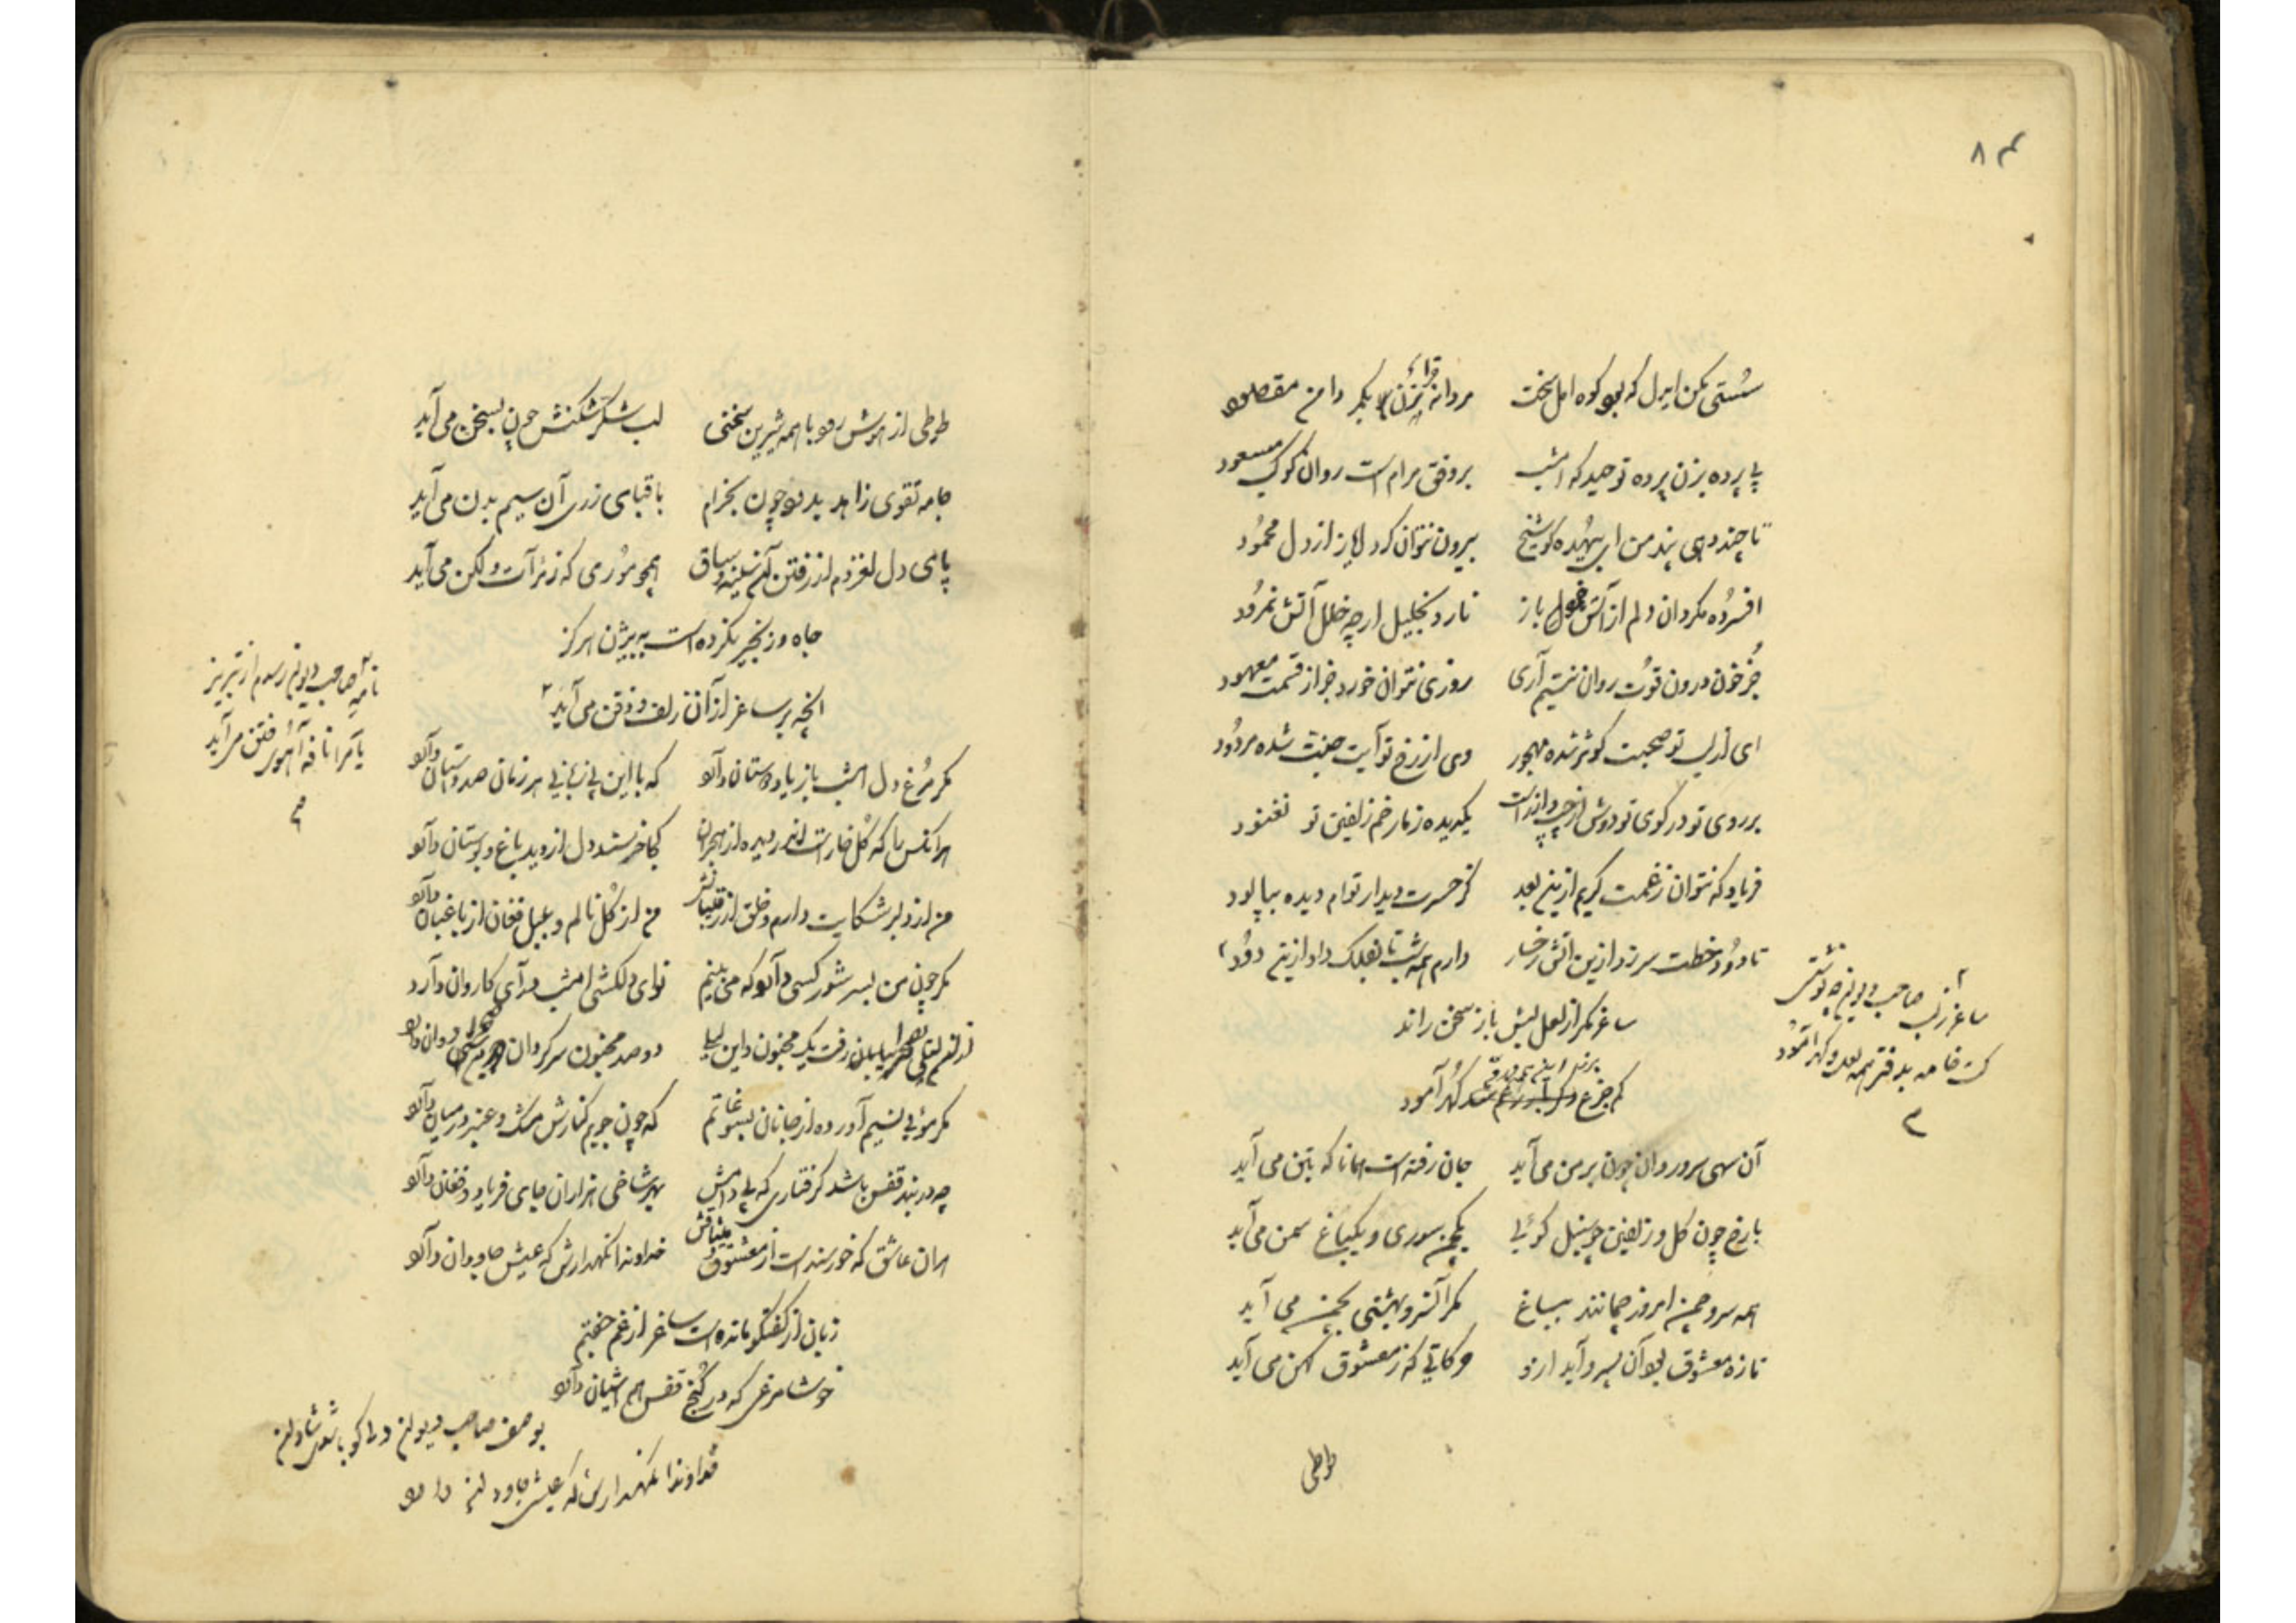 ۸۳
سُستی مکن ایدل که بود کوه امل سخت مردانه بزن بگیر دامن مقصود
پی پرده بزن پرده توحید که امشب بر وفق مرام است روان کوکب مسعود
تا چند دهی پند من ای بیهُده گو شیخ بیرون نتوان کرد ایاز از دل محمُود
افسرُده مگردان دلم از آتش باز نارد بخلیل ارچه خلل آتش نمرُود
جُز خون درون قوُت روان نیستم آری روزی نتوان خورد جز از قسمت معهود
ای از لب تو صحبت کوثر شده مهجور وی از رخ تو آیت جنت شده مردُود
بر روی تو در کوی تو دوش از چپ و از راست یکدیده ز مار خم زلفین تو نغنود
فریاد که نتوان ز غمت گریم ازین بعد کز حسرت دیدار توام دیده بپالود
تا دوُد خطت سر زد ازین آتش رخسار دارم همه شب تا بفلک داد ازین دوُد
ساغر مگر از لعل لبش باز سخن راند
کم جزع گهُر آمود
ساغر ز لب صاحب دیوان چه نوشتی
کت خامه بدفتر همه لعل و گهر آمُود
آن سهی سرو روان چون بر من می آید جان رفته است همانا که بتن می آید
با رخ چون گل و زلفین چو سنبل گوئی یکچمن سوری و یکباغ سمن می آید
همه سرو چمن امروز چمانند بباغ مگر آنسرو بهشتی بچمن می آید
تازه معشوق بود آن بسر و آید ازو حرکاتی که ز معشوق کهن می آید
طوطی
طوطی از هوش رود با همه شیرین سخنی لب شکر شکنش چون بسخن می آید
جامه تقوی زاهد بدرد چون بخرام با قبای زری آن سیم بدن می آید
پای دل لغزدم از رفتن آن سینه و ساق همچو موُری که ز مرآت و لگن می آید
چاه و زنجیر نکرده است به بیژن هرگز
انچه بر ساغر از آن زلف و ذقن می آید
نامه صاحب دیوان رسدم از تبریز
یا مرا نافه آهوی ختن می آید
مگر مرُغ دل امشب باز یاد دوستان دارد که با این بی زبانی هر زمان صد داستان دارد
هر آنکس را که گل خار است اندر دیده از هجران کجا خرسند دل از دید باغ و بوستان دارد
من از دلبر شکایت دارم و خلق از رقیبانش من از گُل نالم و بلبل فغان از باغبان دارد
مگر چون من بسر شور کسی دارد که می بینم نوای دلکشی امشب درآی کاروان دارد
بیابان رفت یک مجنون و این لیلی دو صد مجنون سرگردان دوان دارد
مگر موُئی نسیم آورده از جانان بسوغاتم که چون جویم کنارش مشک و عنبر در میان دارد
چه در بند قفس باشد گرفتاری که بی دامش بهر شاخی هزاران جای فریاد و فغان دارد
هر آن عاشق که خورسند است از معشوق خداوندا نگهدارش که عیش جاودان دارد
زبان از گفتگو مانده است ساغر از غم خفتم
خوشا مرغی که در کُنج قفس هم آشیان دارد
بوصف صاحب دیوان دلا گو باش شادان
خداوندا نگهدارش که عیش جاودان دارد